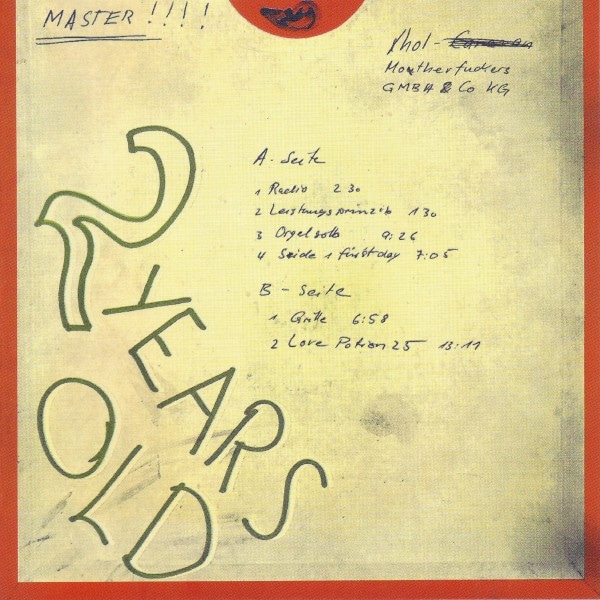 MASTER !!!!
Xhol -
Moutherfuckers
GMBH & Co KG
A - Seite
1 Radio 2 30
2 Leistungsprinzib 1 30
3 Orgelsolo 9:26
4 Side 1 first day 7:05
B - Seite
1 Grille 6:58
2 Love Potion 25 13:11
2 YEARS
OLD